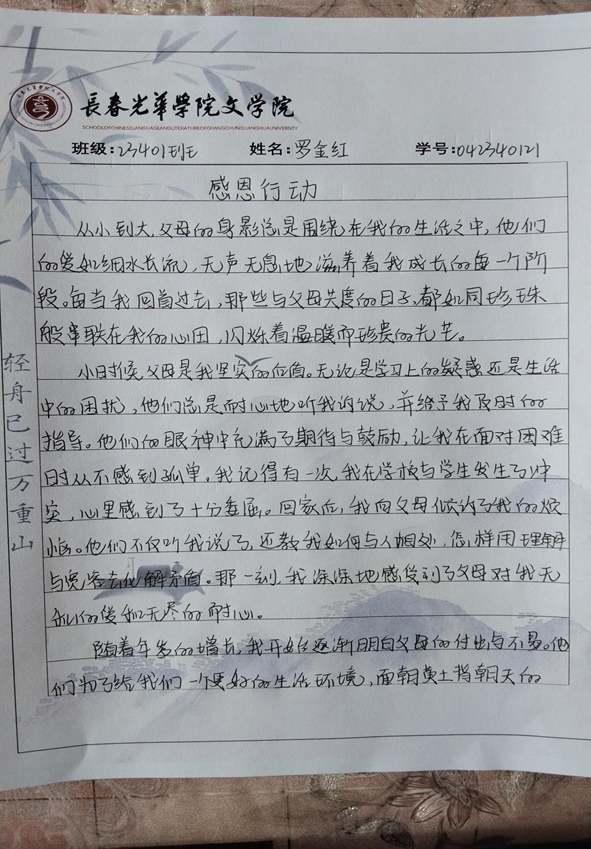 長春光華學院文学院
SCHOOL OF CHINESE LANGUAGE AND LITERATURE OF CHANGCHUN GUANGHUA UNIVERSITY
班级:23401班 姓名:罗金红 学号:042340121
感恩行动
从小到大,父母的身影总是围绕在我的生活之中,他们
的爱如细水长流,无声无息地滋养着我成长的每一个阶
段。每当我回首过去,那些与父母共度的日子,都如同珍珠
般串联在我的心田,闪烁着温暖而珍贵的光芒。
小时候,父母是我坚实的后盾。无论是学习上的疑惑还是生活
中的困扰,他们总是耐心地听我诉说,并给予我及时的
指导。他们的眼神中充满了期待与鼓励,让我在面对困难
时从不感到孤单。我记得有一次,我在学校与学生发生了冲
突,心里感到了十分委屈。回家后,我向父母倾诉了我的烦
恼。他们不仅听我说了,还教我如何与人相处,怎样用理解
与宽容去化解矛盾。那一刻,我深深地感受到了父母对我无
私的爱和无尽的耐心。
随着年岁的增长,我开始逐渐明白父母的付出与不易。他
们为了给我们一个更好的生活环境,面朝黄土背朝天的
轻舟已过万重山